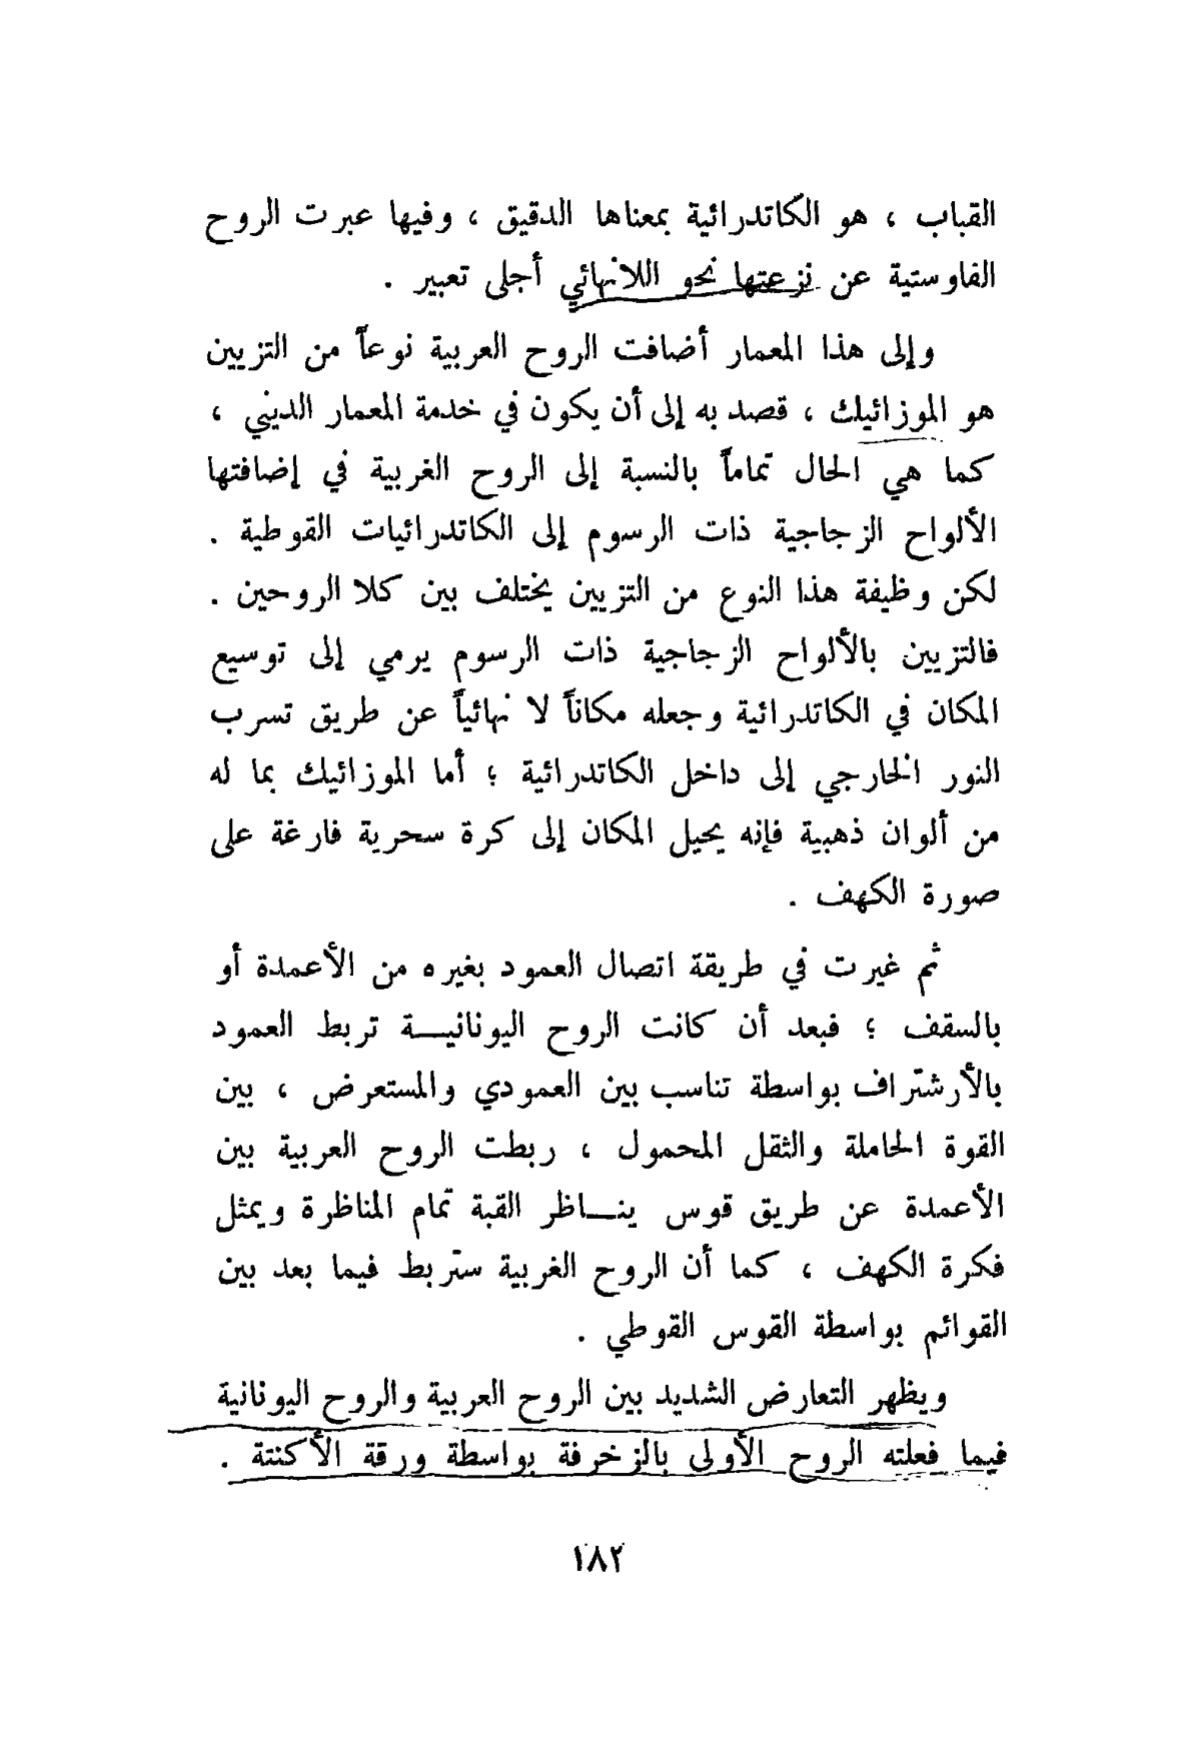 القباب ، هو الكاتدرائية بمعناها الدقيق ، وفيها عبرت الروح
الفاوستية عن نزعتها نحو اللانهائي أجلى تعبير .
وإلى هذا المعمار أضافت الروح العربية نوعاً من التزيين
هو الموزائيك ، قصد به إلى أن يكون في خدمة المعمار الديني ،
كما هي الحال تماماً بالنسبة إلى الروح الغربية في إضافتها
الألواح الزجاجية ذات الرسوم إلى الكاتدرائيات القوطية .
لكن وظيفة هذا النوع من التزيين يختلف بين كلا الروحين .
فالتزيين بالألواح الزجاجية ذات الرسوم يرمي إلى توسيع
المكان في الكاتدرائية وجعله مكاناً لا نهائياً عن طريق تسرب
النور الخارجي إلى داخل الكاتدرائية ؛ أما الموزائيك بما له
من ألوان ذهبية فإنه يحيل المكان إلى كرة سحرية فارغة على
صورة الكهف .
ثم غيرت في طريقة اتصال العمود بغيره من الأعمدة أو
بالسقف ؛ فبعد أن كانت الروح اليونانيـــة تربط العمود
بالأرشتراف بواسطة تناسب بين العمودي والمستعرض ، بين
القوة الحاملة والثقل المحمول ، ربطت الروح العربية بين
الأعمدة عن طريق قوس ينـــاظر القبة تمام المناظرة ويمثل
فكرة الكهف ، كما أن الروح الغربية ستربط فيما بعد بين
القوائم بواسطة القوس القوطي .
ويظهر التعارض الشديد بين الروح العربية والروح اليونانية
فيما فعلته الروح الأولى بالزخرفة بواسطة ورقة الأكنتة .
١٨٢